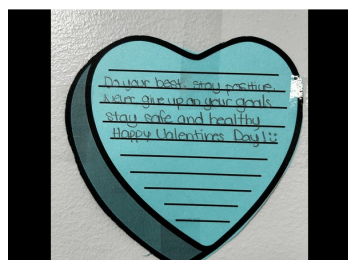 Do your best, stay positive.
Never give up on your goals
stay safe and healthy
Happy Valentines Day! :)